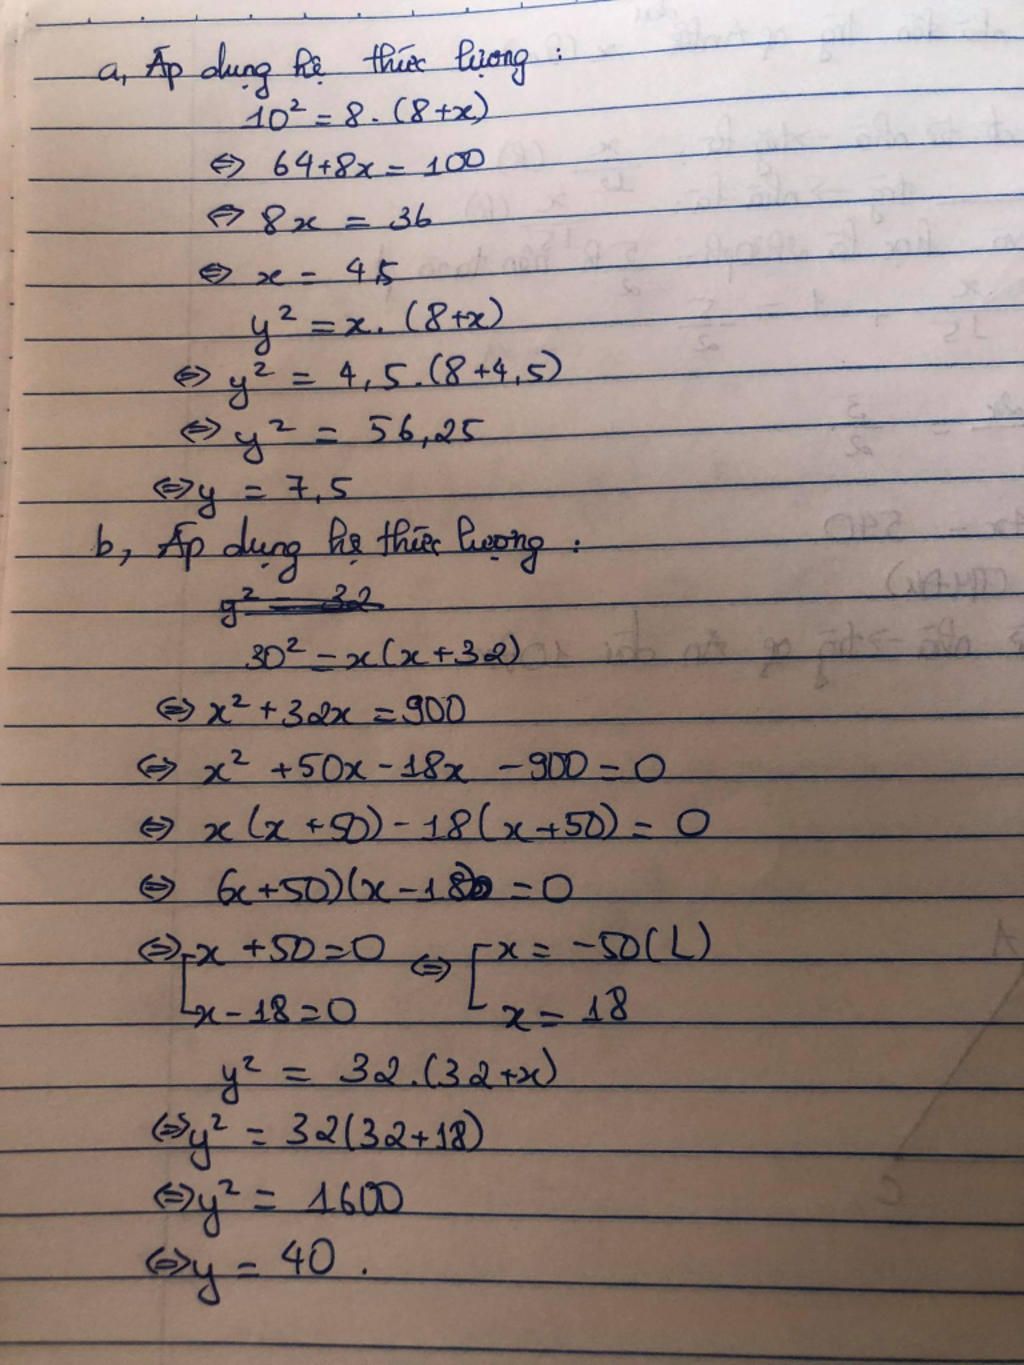 a, Áp dụng hệ thức lượng :
10² = 8 . (8+x)
⇔ 64+8x = 100
⇔ 8x = 36
⇔ x = 4,5
y² = x. (8+x)
⇔ y² = 4,5.(8+4,5)
⇔ y² = 56,25
⇔ y = 7,5
b, Áp dụng hệ thức lượng :
y² = 32
30² = x(x+32)
⇔ x² + 32x = 900
⇔ x² +50x - 18x - 900 = 0
⇔ x(x+50) - 18(x+50) = 0
⇔ (x+50)(x-18) = 0
⇔ [x +50=0 ⇔ [x = -50(L)
x-18=0 x = 18
y² = 32.(32+x)
⇔ y² = 32(32+18)
⇔ y² = 1600
⇔ y = 40 .